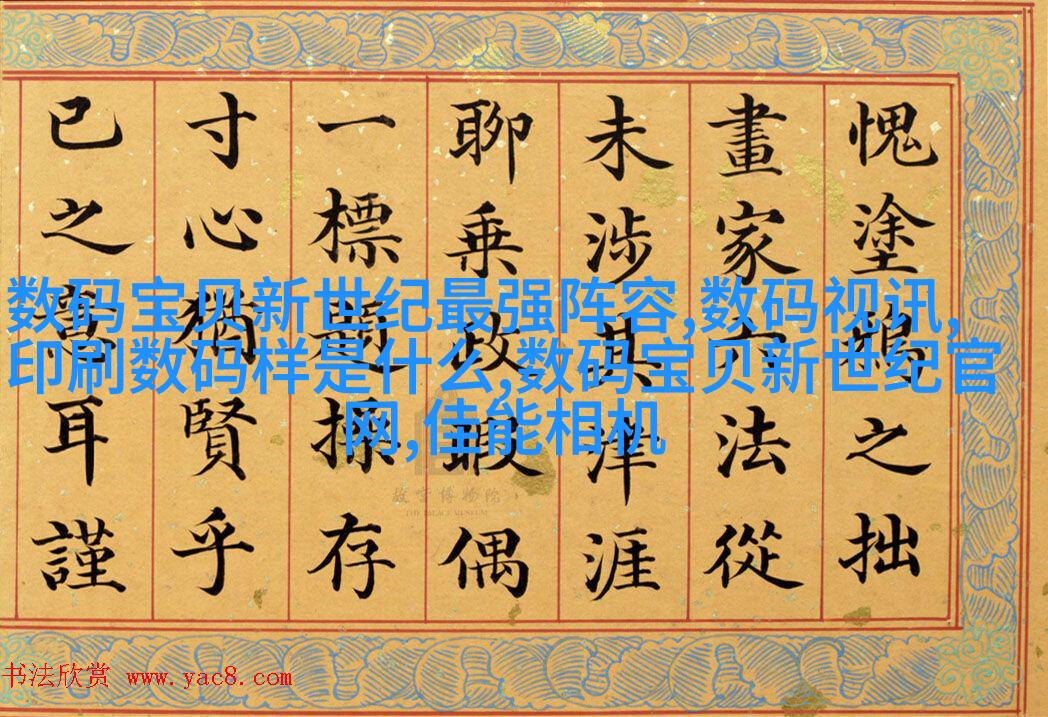 愧塗鴉之拙
畫家六法從
未涉其津涯
聊乘政暇偶
一標題操存
寸心猶賢乎
已之意耳謹
数码宝贝新世纪最强阵容,数码视讯,
印刷数码样是什么,数码宝贝新世纪官
网,佳能相机
故宫博物院
THE PALACE MUSEUM
书法欣赏 www.yac8.com